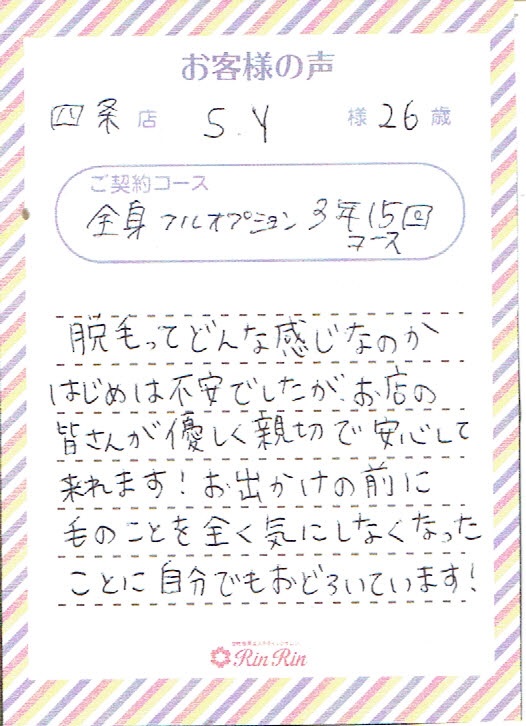 お客様の声
四条 店 S.Y 様 26 歳
ご契約コース
全身フルオプション 3年15回
コース
脱毛ってどんな感じなのか
はじめは不安でしたが、お店の
皆さんが優しく親切で安心して
来れます!お出かけの前に
毛のことを全く気にしなくなった
ことに自分でもおどろいています!
RinRin